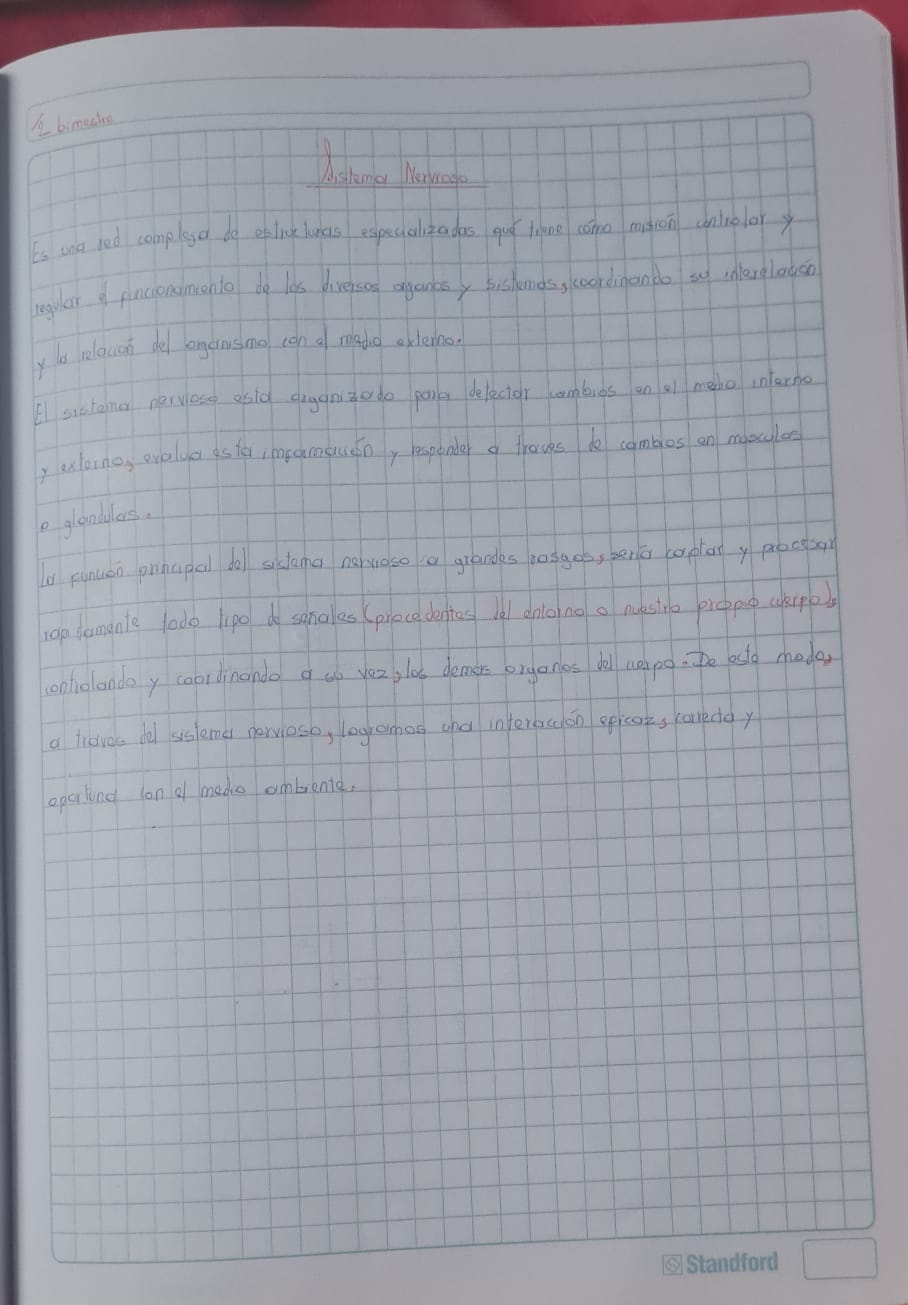 1º bimestre
Sistema Nervioso
Es una red compleja de estructuras especializadas que tiene como mision controlar y
regular el funcionamiento de los diversos organos y sistemas, coordinando su interrelación
y la relación del organismo con el medio externo.
El sistema nervioso esta organizado para detectar cambios en el medio interno
y externo, evalua esta información y responder a traves de cambios en músculos
o glandulas.
La función principal del sistema nervioso a grandes rasgos, seria captar y procesar
rapidamente todo tipo de señales (procedentes del entorno o nuestro propio cuerpo),
controlando y coordinando a su vez, los demas organos del cuerpo. De esta modo,
a traves del sistema nervioso, logramos una interacción eficaz, correcta y
oportuna con el medio ambiente.
Standford